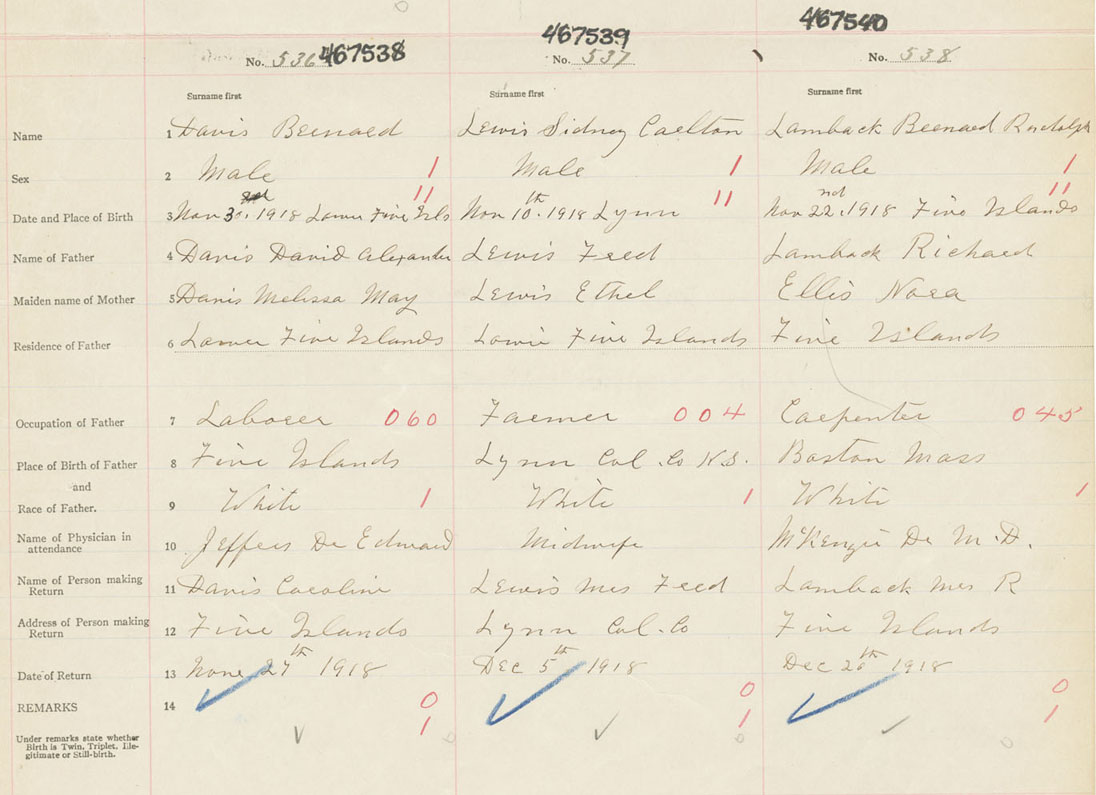 467538 467539 467540
No. 536 No. 537 No. 538
Surname first Surname first Surname first
Name 1 Davis Bernard Lewis Sidney Carlton Lamback Bernard Rudolph
Sex 2 Male 1 Male 1 Male 1
11 11 11
Date and Place of Birth 3 Nov 3, 1918 Lower Five Isls Nov 10th, 1918 Lynn Nov 22nd, 1918 Five Islands
Name of Father 4 Davis David Alexander Lewis Fred Lamback Richard
Maiden name of Mother 5 Davis Melissa May Lewis Ethel Ellis Nora
Residence of Father 6 Lower Five Islands Lowir Five Islands Five Islands
Occupation of Father 7 Laborer 060 Farmer 004 Carpenter 045
Place of Birth of Father 8 Five Islands Lynn Col. Co N.S. Boston Mass
and
Race of Father. 9 White 1 White 1 White 1
Name of Physician in
attendance 10 Jeffers Dr Edward Midwife McKenzie Dr M.D.
Name of Person making
Return 11 Davis Caroline Lewis Mrs Fred Lamback Mrs R
Address of Person making
Return 12 Five Islands Lynn Col. Co Five Islands
Date of Return 13 27th 1918 Dec 5th 1918 Dec 20th 1918
REMARKS 14 0 0 0
1 1 1
Under remarks state whether
Birth is Twin, Triplet, Ille-
gitimate or Still-birth.